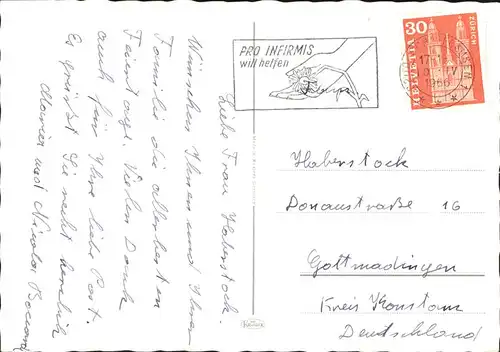 PRO INFIRMIS
will helfen
30
HELVETIA
ZÜRICH
Liebe Frau Haberstock.
Wünschen Ihnen und Ihrer
Familie die allerbesten
Festtage. Vielen Dank
auch für Ihre liebe Post.
Es grüsst Sie recht herzlich
Maria und Nicola
Haberstock
Donaustraße 16
Gottmadingen
Kreis Konstanz
Deutschland